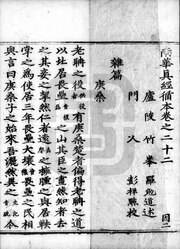 南華真經循本卷之二十二
廬陵竹峯羅勉道述
門人彭祥點校
雜篇
庚桑
老聃之役有庚桑楚者偏得老聃之道
以北居畏壘之山其臣之畫然知者去
之其妾之挈然仁者遠之擁腫之與居鞅
掌之為使居三年畏壘大壤畏壘之民相
與言曰庚桑子之始來吾洒然異之今